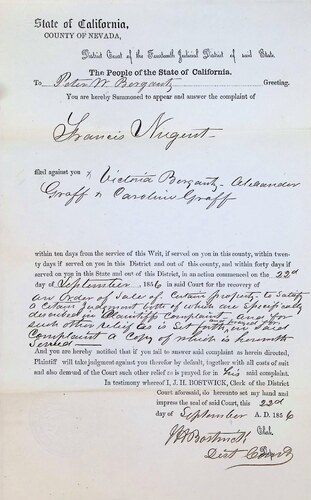 State of California,
COUNTY OF NEVADA,
District Court of the Fourteenth Judicial District of said State.
The People of the State of California.
To Peter W. Bergantz Greeting.
You are hereby Summoned to appear and answer the complaint of
Francis Nugent
filed against you & Victoria Bergantz - Alexander
Graff & Caroline Graff
within ten days from the service of this Writ, if served on you in this county, within twen-
ty days if served on you in this District and out of this county, and within forty days if
served on you in this State and out of this District, in an action commenced on the 22nd
day of September, 1856 in said Court for the recovery of
an Order of Sale of Certain property to Satisfy
a Certain Judgment both of which are Specifically
described in Plaintiffs Complaint, and for
such other Relief as is Set forth, and prayed for in Said
Complaint a Copy of which is herewith
Served
And you are hereby notified that if you fail to answer said complaint as herein directed,
Plaintiff will take judgment against you therefor by default, together with all costs of suit
and also demand of the Court such other relief as is prayed for in his said complaint.
In testimony whereof I, J. H. BOSTWICK, Clerk of the District
Court aforesaid, do hereunto set my hand and
impress the seal of said Court, this 22nd
day of September A. D. 1856
J H Bostwick Clerk.
Dist Court